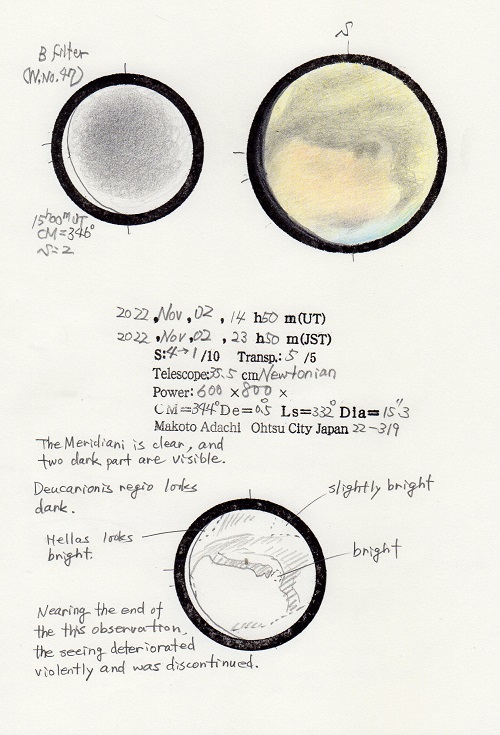 B Filter
(W.No.47)
S
15h00m UT
CM=346°
S=2
2022, Nov, 02, 14 h50 m(UT)
2022, Nov, 02, 23 h50 m(JST)
S:4→1/10 Transp.: 5 /5
Telescope:35.5 cm Newtonian
Power: 600 × 800 ×
CM=344° De=0.5° Ls=332° Dia=15".3
Makoto Adachi Ohtsu City Japan 22-319
The Meridiani is clear, and
two dark part are visible.
Deucarionis regio looks
dark.
slightly bright
Hellas looks
bright.
bright
Nearing the end of
the this observation,
the seeing deteriorated
violently and was discontinued.